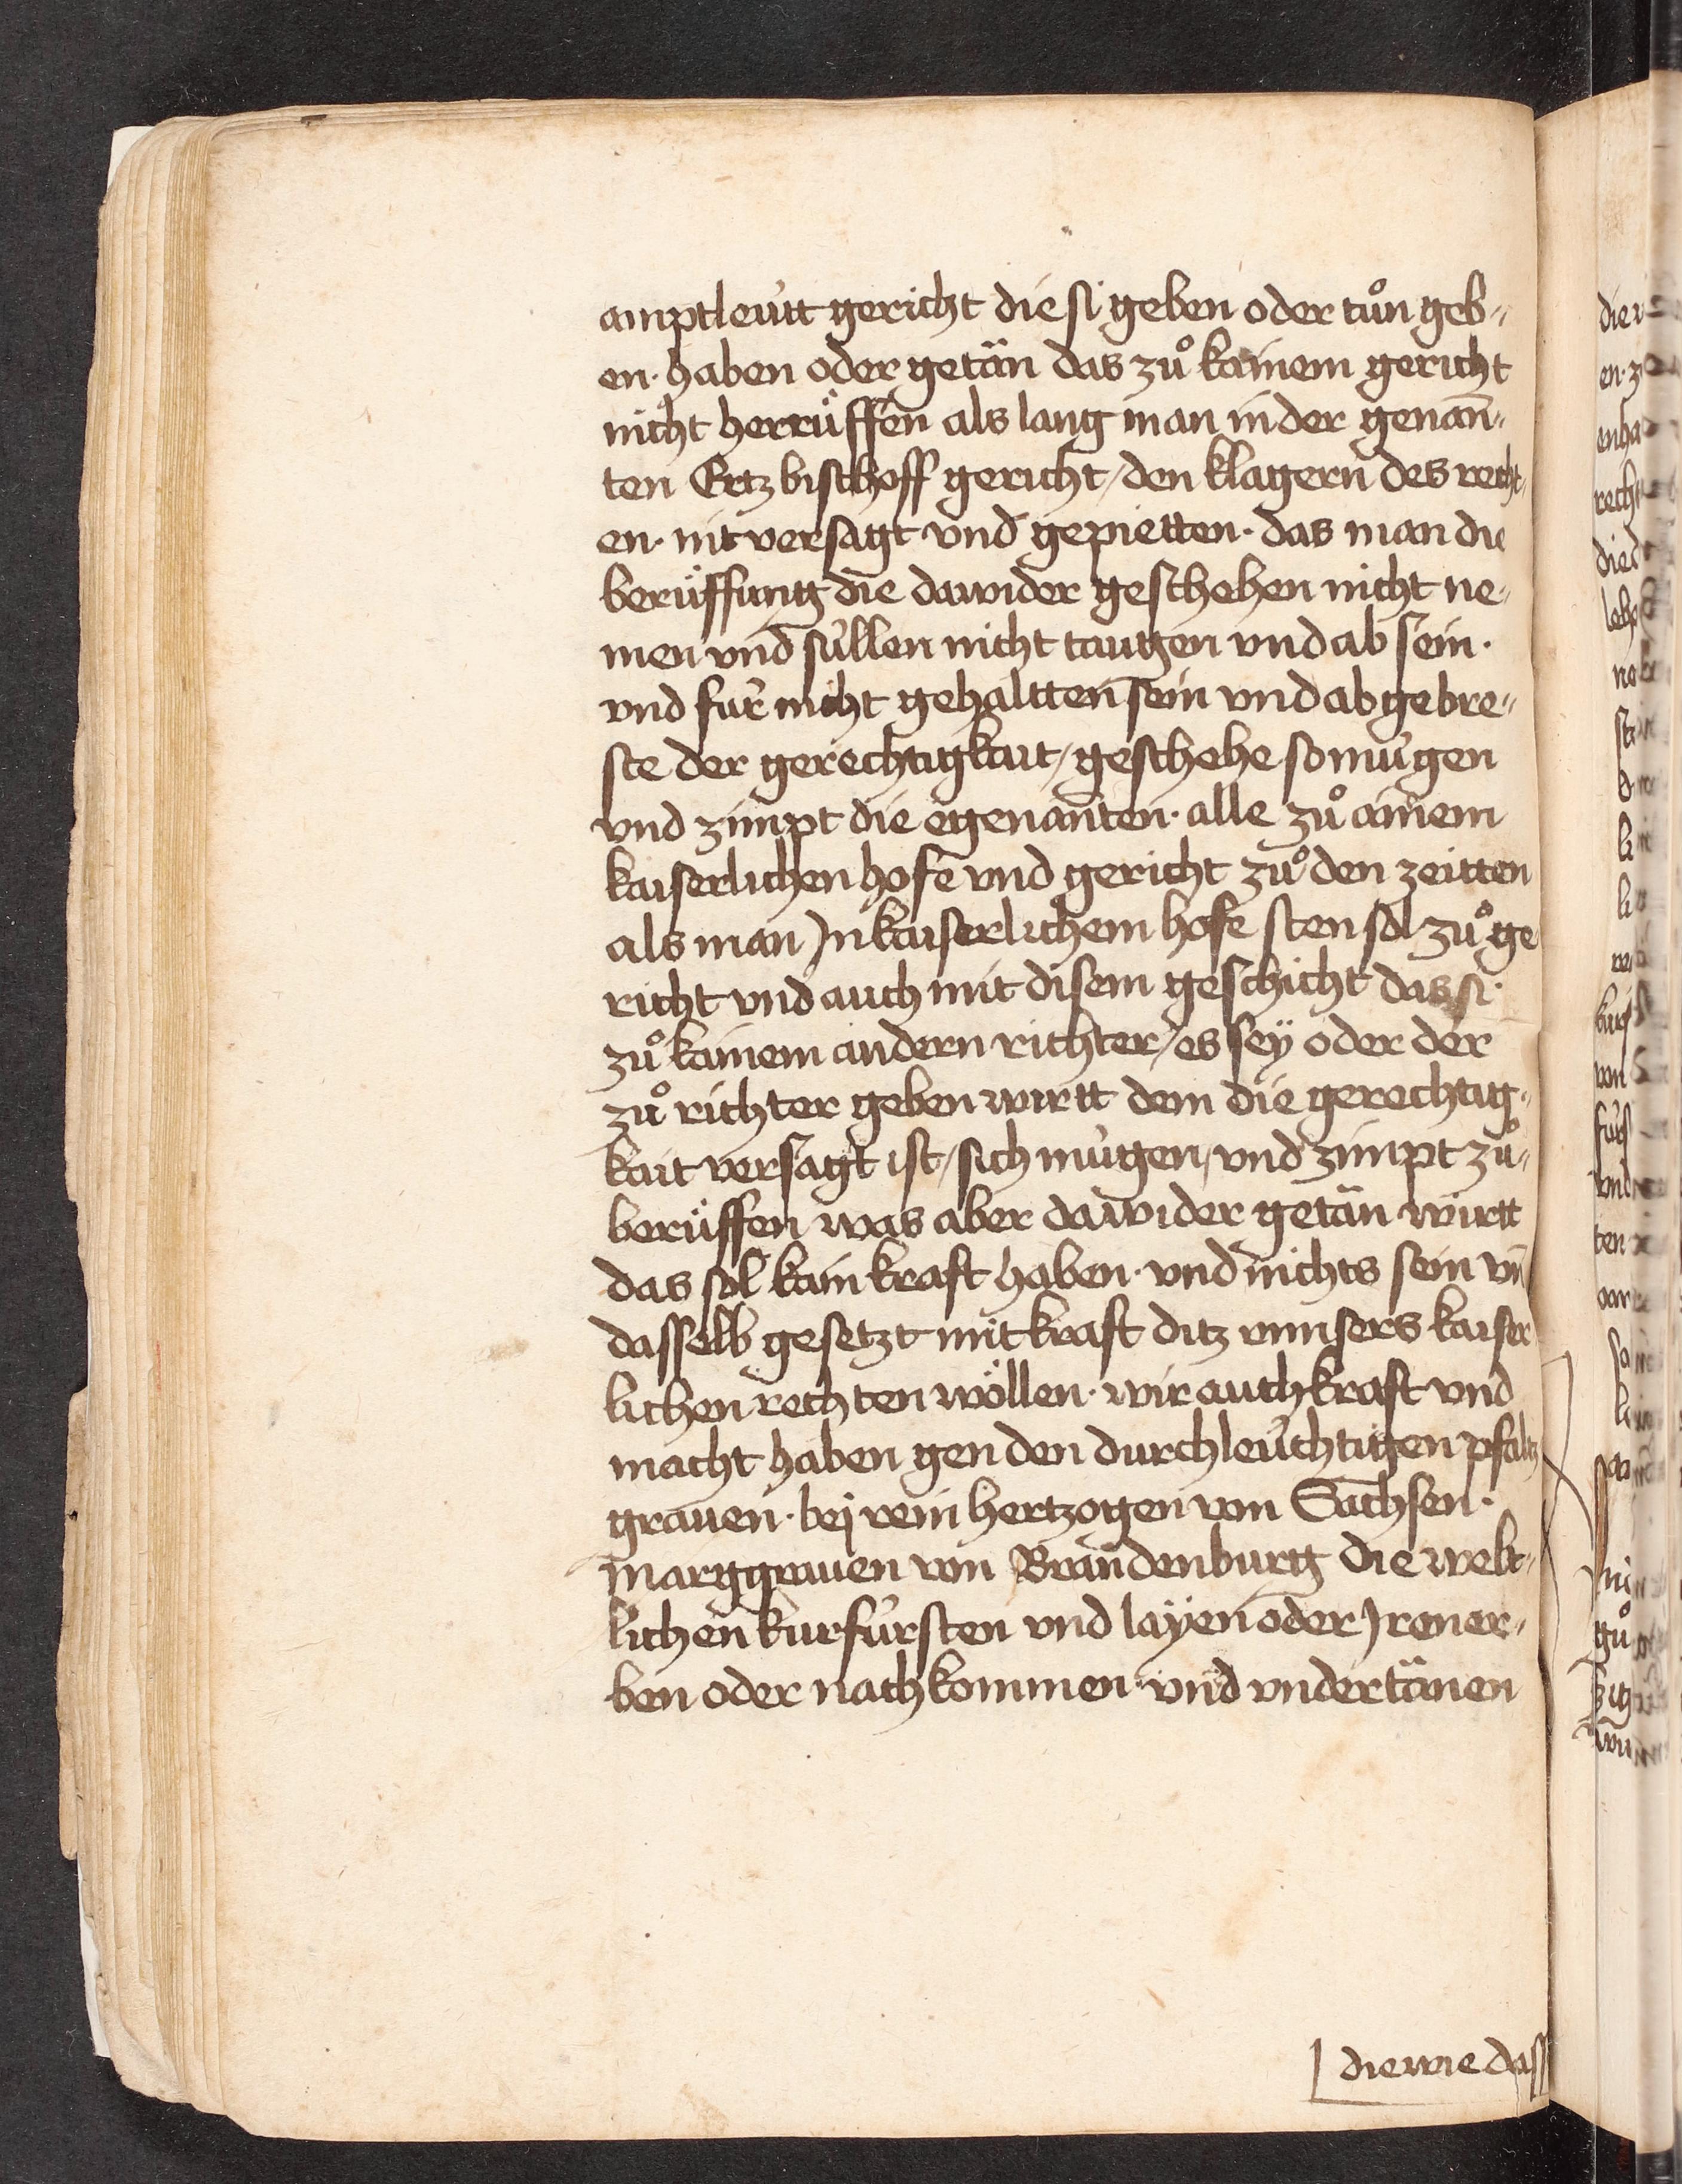 amptleutt gericht die si geben oder tuͦn geb„
en · haben oder getän das zuͦ kainem gericht
nicht herrüffen als lang man in der genan̄„
ten Ertzbischoff gericht / den klagern des recht„
en · nit versagt vnd gepietten · das man die
berüffung die dawider geschehen nicht ne„
men vnd süllen nicht taugen vnd ab sein ·
vnd für nicht gehaltten sein vnd ab gebre„
ste der gerechtigkait / geschehe so mügen
vnd zimpt die egenanten · alle zuͦ ainem
kaiserlichen hofe vnd gericht zuͦ den zeitten
als man Jn kaiserlichem hofe sten sol zuͦ ge
richt vnd auch mit disem geschicht das si ·
zuͦ kainem andern richter / es sey oder der
zuͦ richter geben wirtt dem die gerechtig„
kait versagt ist / sich mügen / vnd zimpt zuͦ„
berüffen was aber dawider getän wirtt
das sol kain kraft haben · vnd nichts sein vn̄
dasselb gesetzt mit kraft ditz vnnsers kaiser
lichen rechten wöllen · wir auch kraft vnd
macht haben gen den durchleuchtigen pfaltz
grauen · bej rein hertzogen von Sachsen ·
marggrauen von Brandenburg die welt„
lichen kurfürsten vnd layen oder Jren er„
ben oder nachkommen · vnd vndertänen
die wie dass